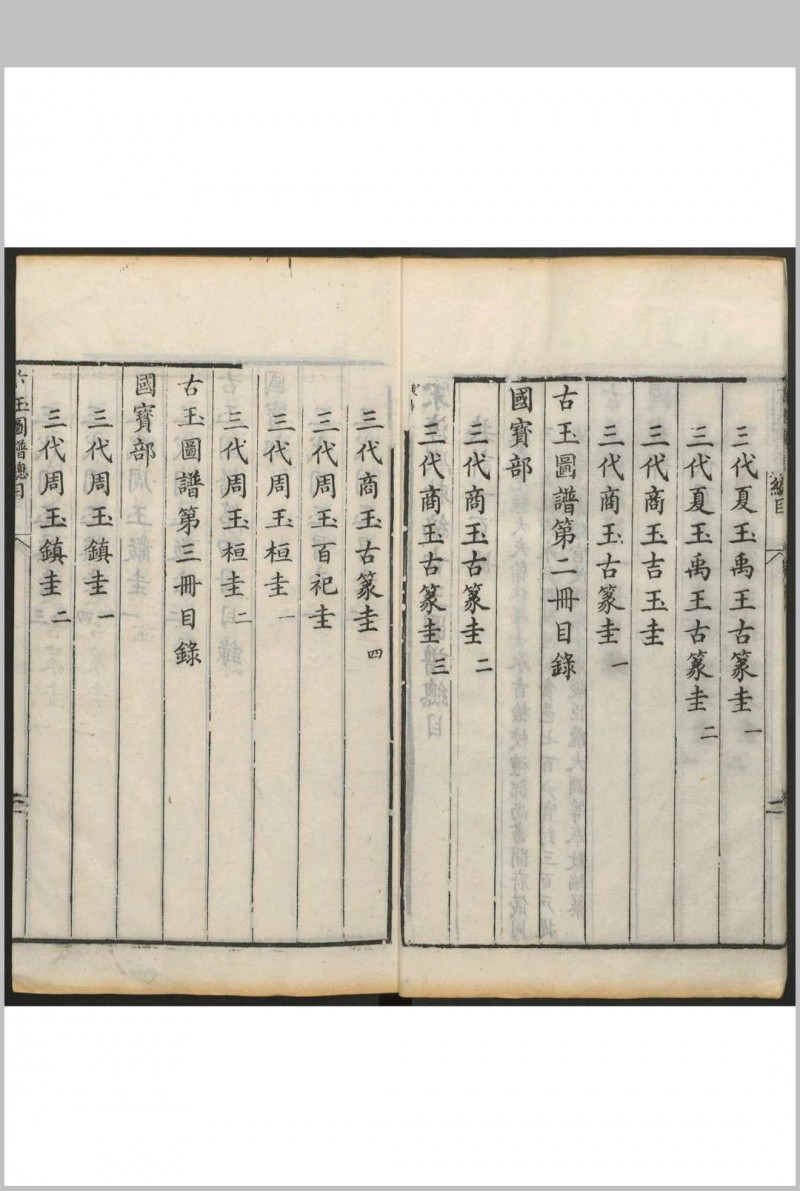 三代夏玉禹王古篆圭一
三代夏玉禹王古篆圭二
三代商玉吉玉圭
三代商玉古篆圭一
古玉圖譜第二冊目錄
國寶部
三代商玉古篆圭二
三代商玉古篆圭三
三代商玉古篆圭四
三代周玉百祀圭
三代周玉桓圭一
三代周玉桓圭二
古玉圖譜第三冊目錄
國寶部
三代周玉鎮圭一
三代周玉鎮圭二
玉圖譜總目
二